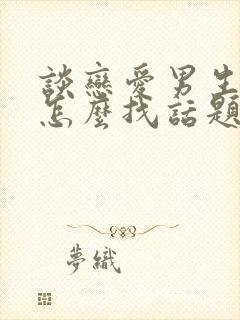 談戀愛男生
怎麼找話題
夢織